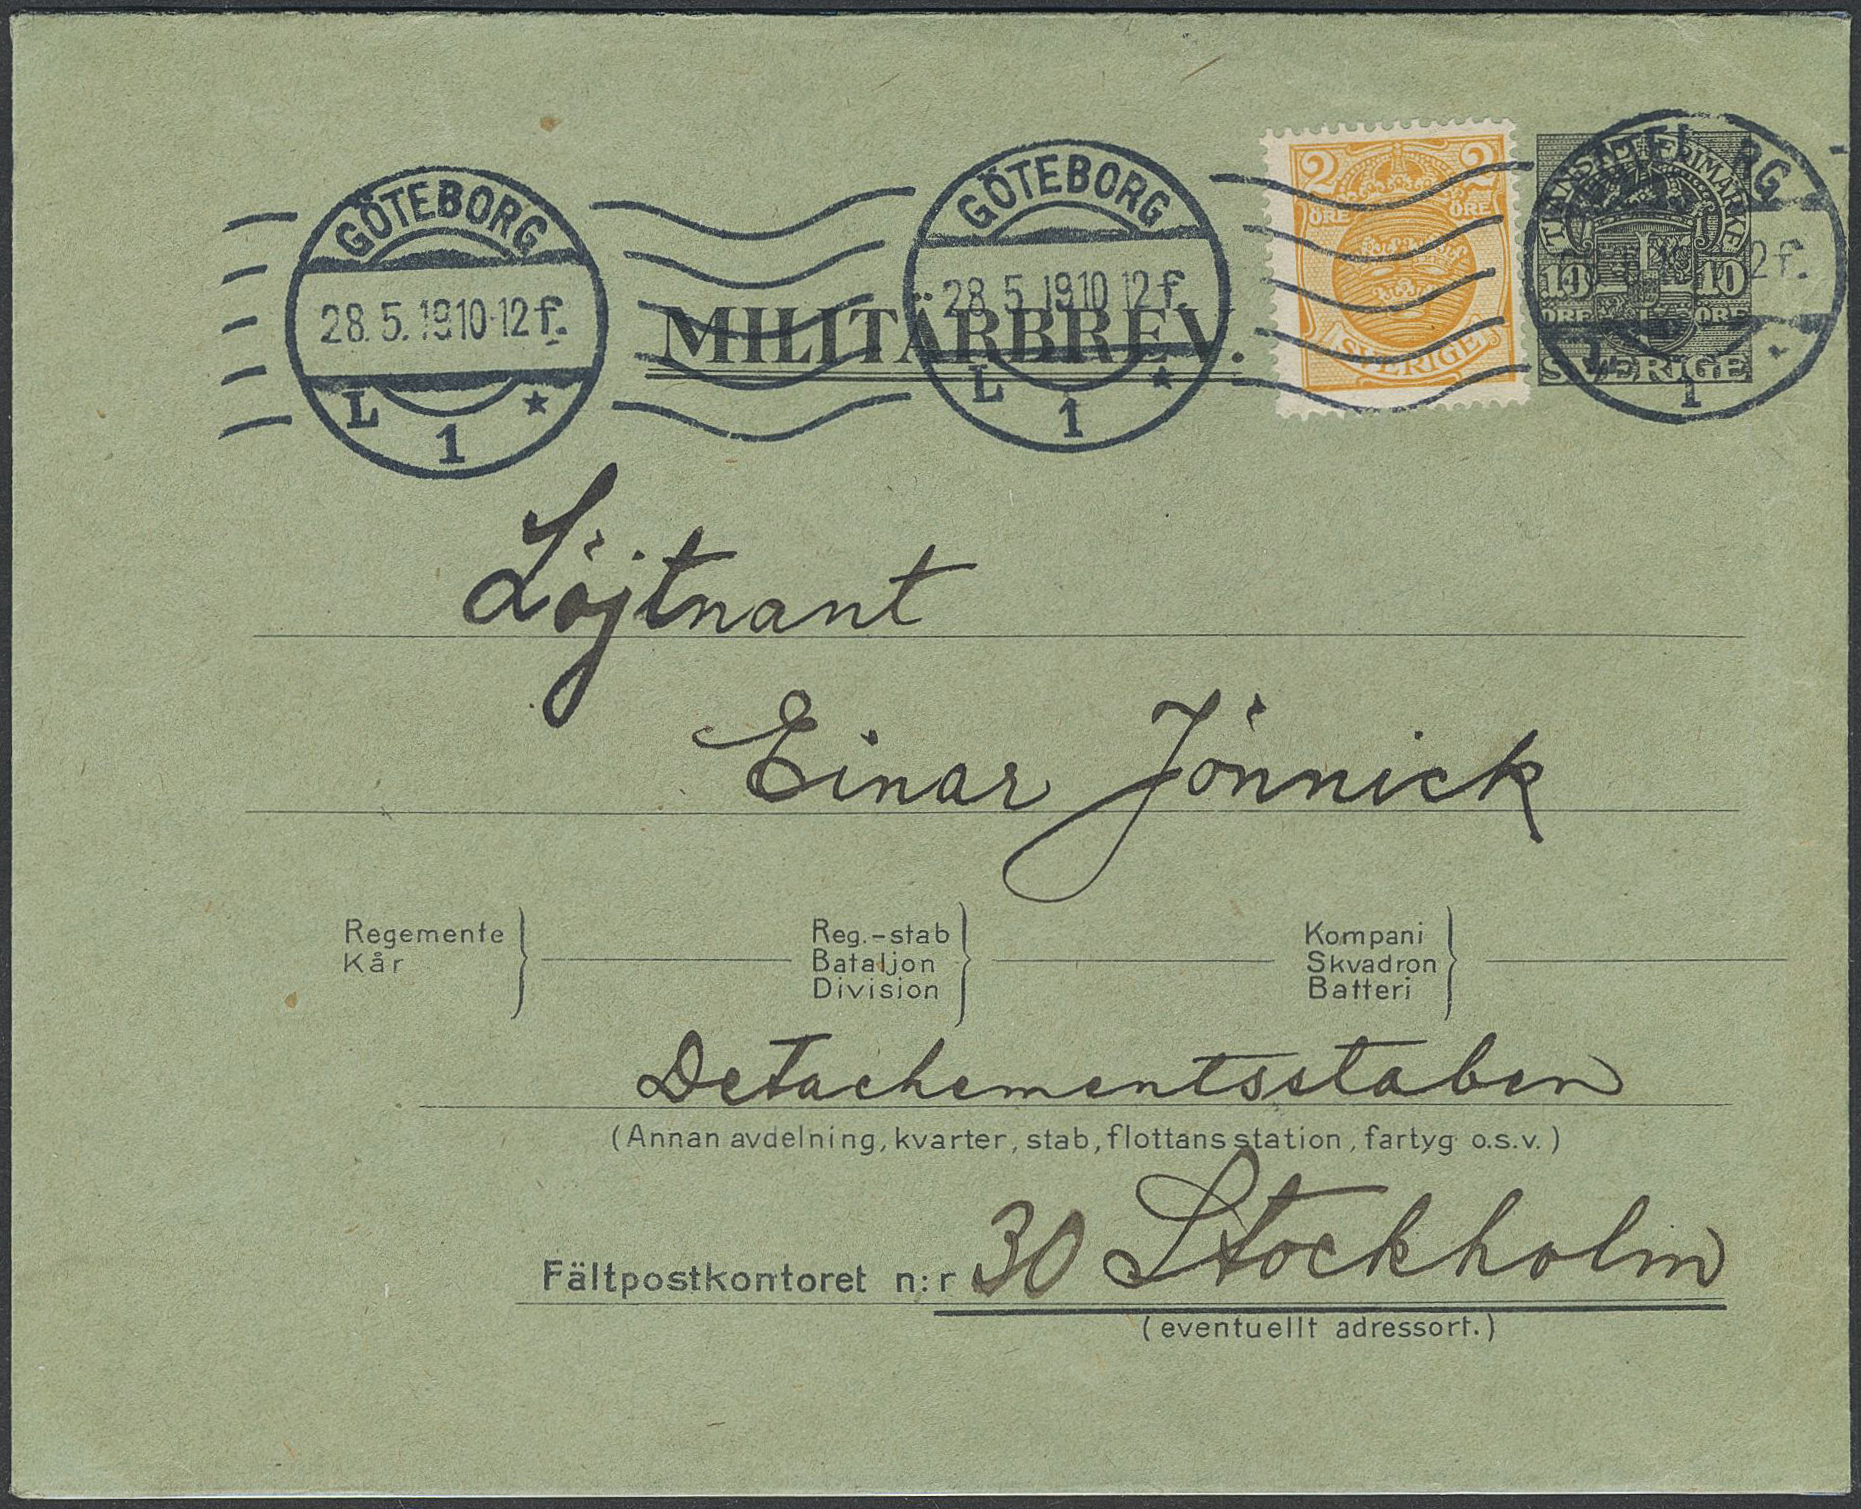 GÖTEBORG
28.5.19 10-12 f.
L 1
GÖTEBORG
28.5.19 10 12 f.
L 1
2 2
ÖRE ÖRE
SVERIGE
TJÄNSTEFRIMÄRKE
10 10
ÖRE ÖRE
SVERIGE
RG
2 f.
1
MILITÄRBREV.
Löjtnant
Einar Jönnick
Regemente
Kår
Reg.-stab
Bataljon
Division
Kompani
Skvadron
Batteri
Detachementsstaben
(Annan avdelning, kvarter, stab, flottans station, fartyg o.s.v.)
Fältpostkontoret n:r 30 Stockholm
(eventuellt adressort.)